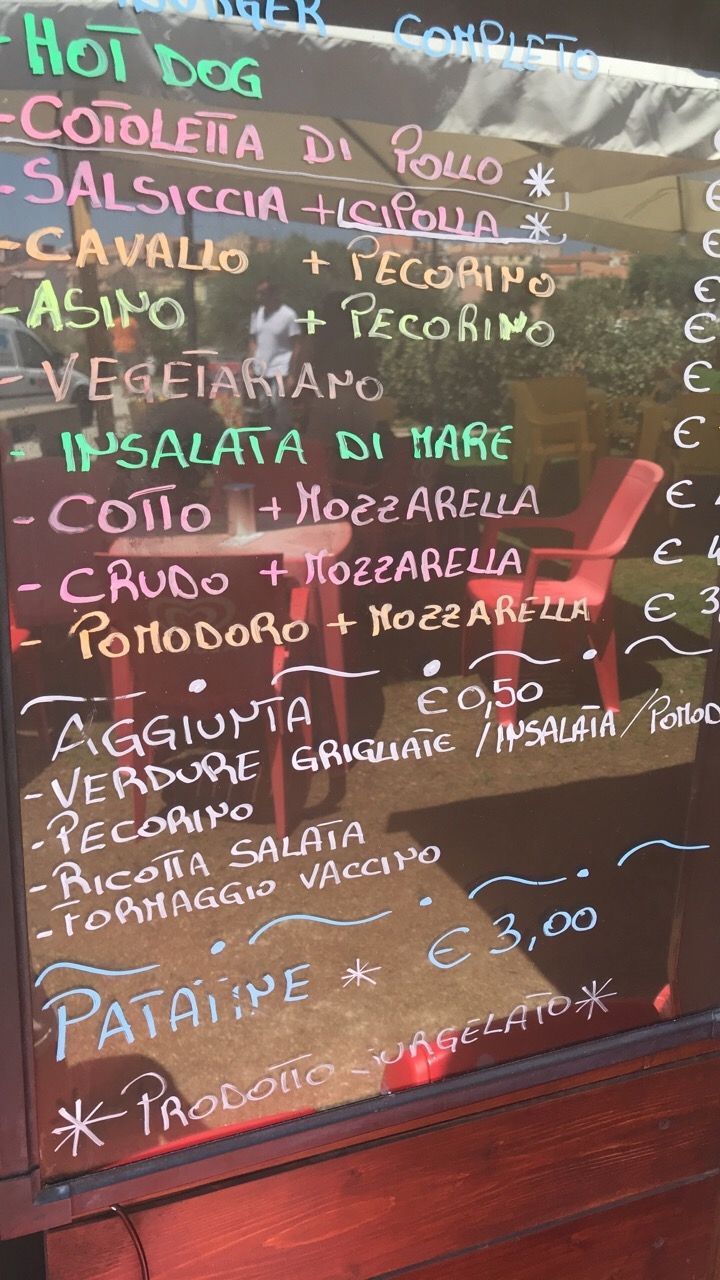 BURGER COMPLETO
- HOT DOG
- COTOLETTA DI POLLO *
- SALSICCIA + CIPOLLA *
- CAVALLO + PECORINO €
- ASINO + PECORINO €
- VEGETARIANO €
- INSALATA DI MARE €
- COTTO + MOZZARELLA €
- CRUDO + MOZZARELLA € 4
- POMODORO + MOZZARELLA € 3
AGGIUNTA € 0,50
- VERDURE GRIGLIATE / INSALATA / POMOD
- PECORINO
- RICOTTA SALATA
- FORMAGGIO VACCINO
PATATINE * € 3,00
* PRODOTTO SURGELATO *